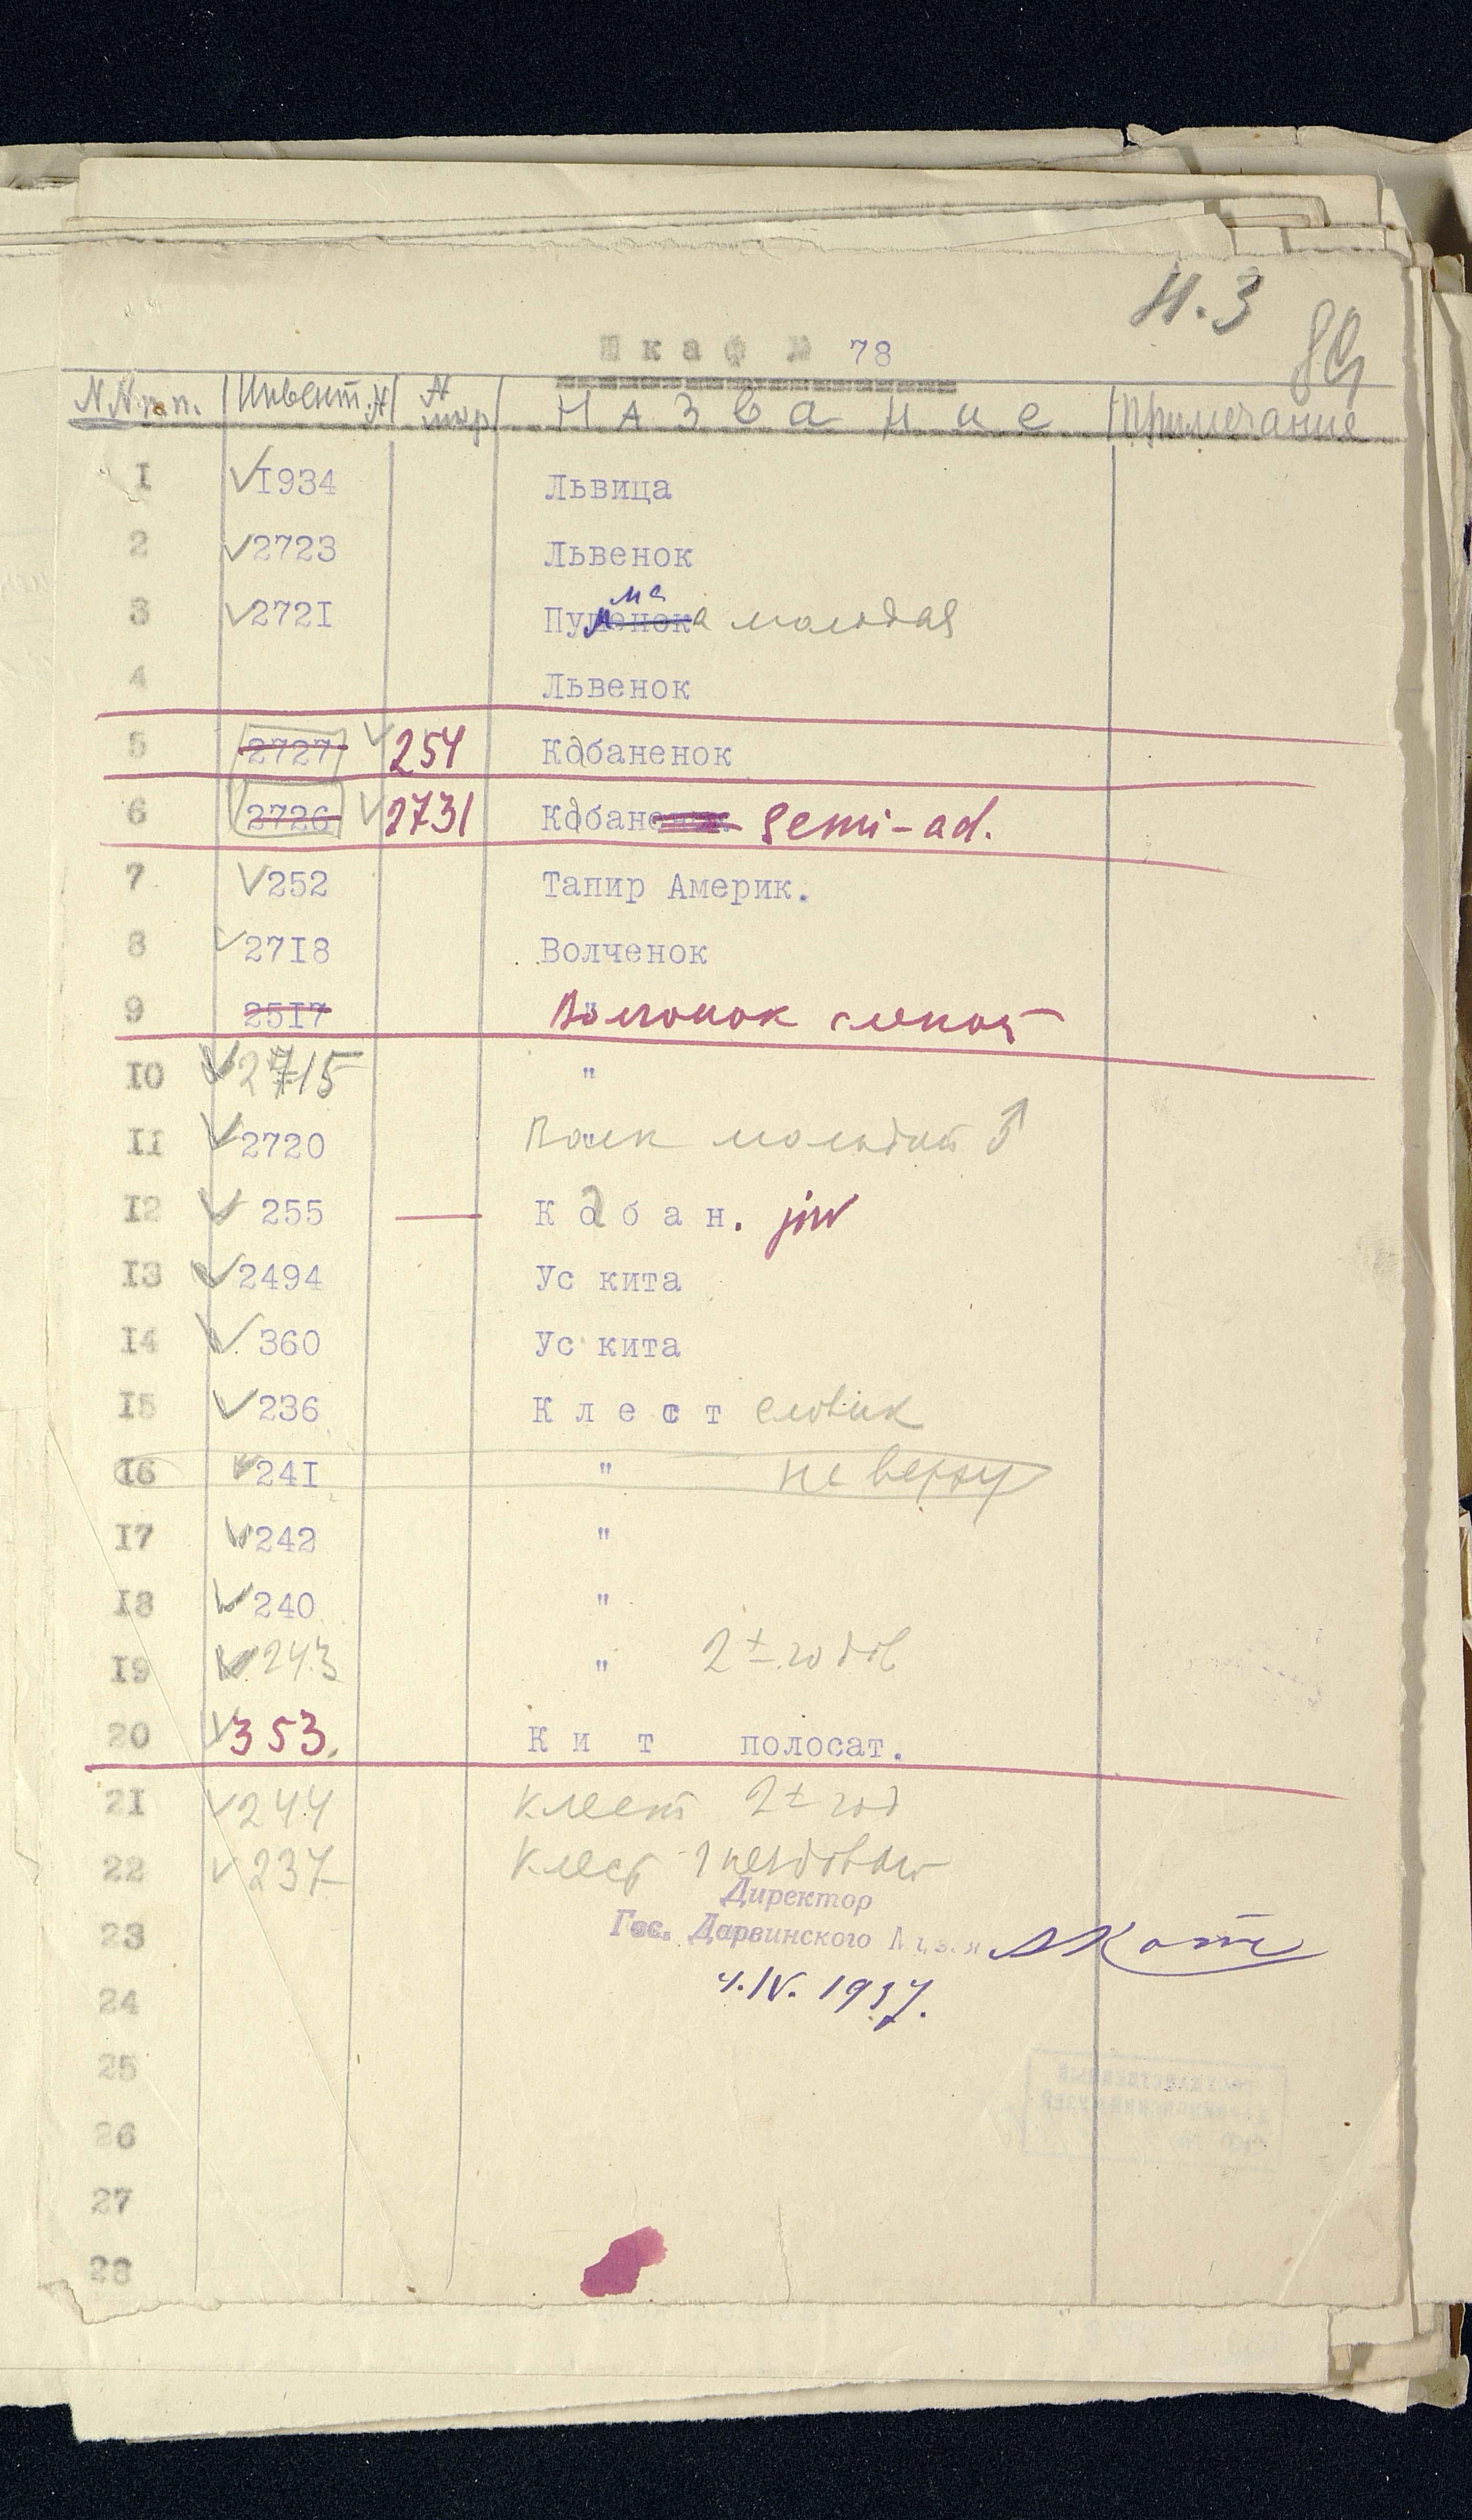 И.3
89
Шкаф № 78
N.N. п.п. Инвент. N N шкр Название Примечание
I 1934 Львица
2 2723 Львенок
3 272I Пума молодая
4 Львенок
5 2727 254 Кабаненок
6 2726 2731 Кабан semi-ad.
7 252 Тапир Америк.
8 27I8 Волченок
9 25I7 Волчонок слепой
I0 2715 "
II 2720 Волк молодой ♂
I2 255 — Кабан. juv
I3 2494 Ус кита
I4 360 Ус кита
I5 236 Клест еловик
I6 24I " не верху
I7 242 "
I8 240 "
I9 243 " 2 ± годов
20 353. Кит полосат.
2I 244 Клест 2 ± год
22 237 Клест гнездовый
Директор
23 Гос. Дарвинского Музея АКотс
24 4.IV. 1937.
25
26
27
28